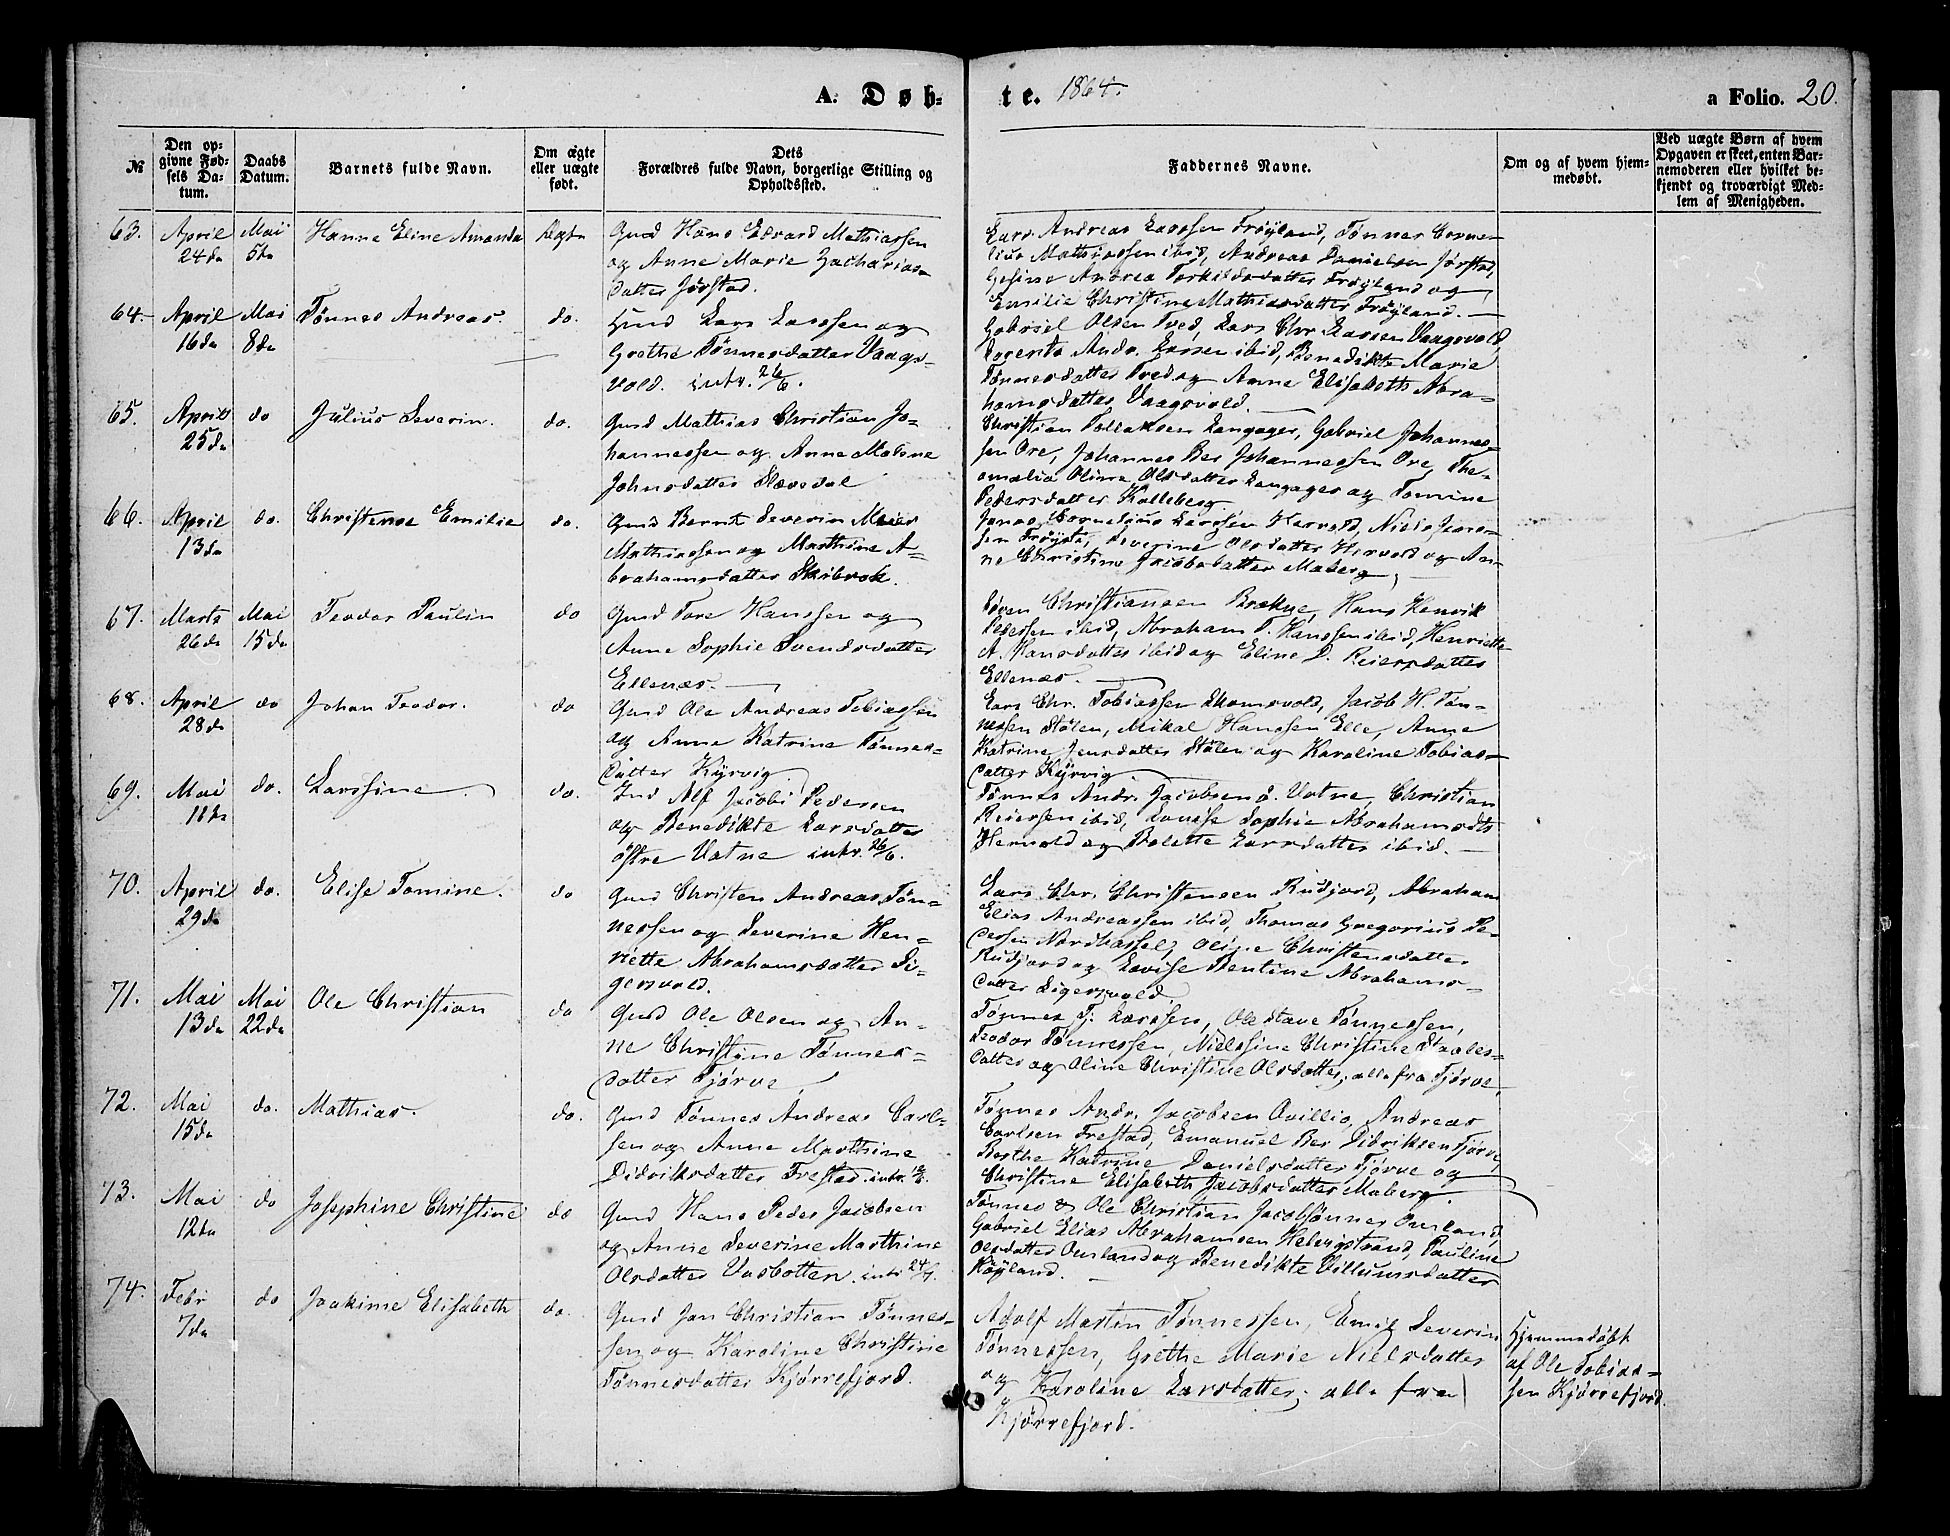 A. Døb-
te. 1864.
a Folio. 20.
№
Den op-
givne Fød-
sels Da-
tum.
Daabs
Datum.
Barnets fulde Navn.
Om ægte
eller uægte
født.
Dets
Forældres fulde Navn, borgerlige Stilling og
Opholdssted.
Faddernes Navne.
Om og af hvem hjem-
medøbt.
Ved uægte Børn af hvem
Opgaven er skeet, enten Bar-
nemoderen eller hvilket be-
kjendt og troværdigt Med-
lem af Menigheden.
63. April 24de
Mai 5te
Hanne Eline Amanda
Ægte
Gmd Hans Edvard Mathiassen
og Anne Marie Zacharias-
datter Jørstad.
Lars Andreas Larssen Frøyland, Tønnes Corne-
lius Mathiassen ibid, Andreas Danielsen Jørstad,
Gesine Andrea Torkildsdatter Frøyland og
Emilie Christine Mathiasdatter Frøyland.
64. April 16de
Mai 8de
Tønnes Andreas.
do.
Lars Larssen og
Grethe Tønnesdatter Vaags-
vold. intr. 26/6.
Gabriel Olsen Tved, Lars Chr Larsen Vaagsvold,
Lorents Andr. Larsen ibid, Benedikte Marie
Tønnesdatter Tved og Anne Elisabeth Abra-
hamsdatter Vaagsvold.
65. April 25de
do
Julius Severin.
do.
Gmd Mathias Christian Jo-
hannessen og Anne Malene
Johnsdatter Stavedal
Christian Tollaksen Langager, Gabriel Johannes-
sen Ore, Johannes Ber Johannessen Ore, The-
omalia Oline Olsdatter Langager og Tomine
Pedersdatter Kalleberg.
66. April 13de
do.
Christense Emilie
do.
Gmd Bernt Severin Meier
Mathiassen og Marthine A-
brahamsdatter Skibrok.
Jonas Cornelius Larssen Hervold, Niels Jens-
sen Frøyste, Severine Olsdatter Hervold og An-
ne Christine Jacobsdatter Maberg
67. Marts 26de
Mai 15de
Teodor Paulin
do
Gmd Tore Hanssen og
Anne Sophie Svendsdatter
Ellenæs.
Søren Christiansen Brække, Hans Henrik
Pedersen ibid, Abraham T. Hanssen ibid, Henriette
A. Hansdatter ibid og Eline D. Reiersdatter
Ellenæs.
68. April 28de
do
Johan Teodor.
do
Gmd Ole Andreas Tobiassen
og Anne Katrine Tønnes-
datter Kjørvig
Lars Chr. Tobiassen Skomsvold, Jacob H. Tøn-
nessen Stølen, Mikal Hanssen Elle, Anne
Katrine Jensdatter Stølen og Karoline Tobias-
datter Kjørvig
69. Mai 11te
do.
Larssine.
do.
Ind Alf Jacobi Pedersen
og Benedikte Larsdatter
østre Vatne intr. 26/6.
Tønnes Andr. Jacobsen ø. Vatne, Christian
Reiersen ibid, Louise Sophie Abrahamsdtr
Hervold og Bolette Larsdatter ibid.
70. April 29de
do.
Elise Tomine.
do
Gmd Christen Andreas Tøn-
nessen og Severine Hen-
riette Abrahamsdatter Si-
gersvold.
Lars Chr. Christensen Rudjord, Abraham
Elias Andreassen ibid, Thomas Gregorius Pe-
dersen Nordhassel, Oline Christensdatter
Rudjord og Lovise Bentine Abrahams-
datter Sigersvold
71. Mai 13de
Mai 22de
Ole Christian
do
Gmd Ole Olsen og An-
ne Christine Tønnes-
datter Tjørve
Tønnes Tj. Larssen, Ole Stave Tønnessen,
Teodor Tønnessen, Nielssine Christine Staales-
datter og Oline Christine Olsdatter, alle fra Tjørve,
72. Mai 15de
do.
Mathias.
do.
Gmd Tønnes Andreas Carl-
sen og Anne Marthine
Didriksdatter Frestad. intr.
Tønnes Andr. Jacobsen Qvillio, Andreas
Carlsen Frestad, Emanuel Ber Didriksen Tjørve,
Berthe Katrine Danielsdatter Tjørve og
Christine Elisabeth Jacobsdatter Maberg.
73. Mai 12te
do
Josephine Christine
do
Gmd Hans Peder Jacobsen
og Anne Severine Marthine
Olsdatter Vasbotten. intr 24/7.
Tønnes & Ole Christian Jacobsønner Omland,
Gabriel Elias Abrahamsen Helvigstrand, Pauline
Olsdatter Omland og Benedikte Villumsdatter
Køyland.
74. Febr 7de
do
Joakime Elisabeth
do.
Gmd Jan Christian Tønnes-
sen og Karoline Christine
Tønnesdatter Kjørrefjord.
Adolf Martin Tønnessen, Emil Severin
Tønnessen, Grethe Marie Nielsdatter
og Karoline Larsdatter, alle fra
Kjørrefjord.
Hjemmedøbt
af Ole Tobias-
sen Kjørrefjord.